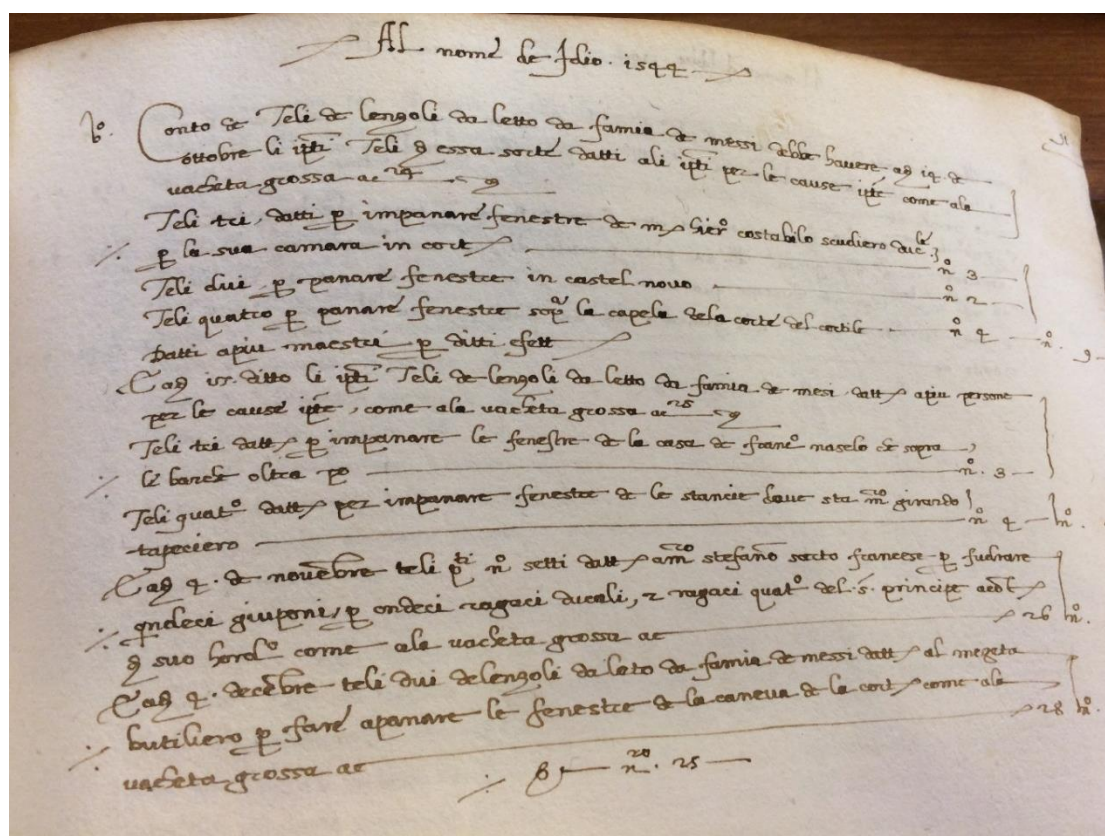 Al nome de Idio. 1544
Conto de Teli de lenzoli da letto da famia de messi debbe havere, ad 14. de
ottobre li Teli essa sorte datti ali per le cause come ala
vacheta grossa ac 24
Teli tri, datti p impanare fenestre de hier.o costabilo scudiero
p la sua camara in cort n.o 3
Teli dui p panare fenestre in castel novo n.o 2
Teli quatro p panare fenestre la capela dela corte del cortile n.o 4 n.o 9
Datti apiu maestri p ditti efett
E ad 15. ditto li Teli de lenzoli da letto da famia de mesi datt apiu persone
per le cause, come ala vacheta grossa ac 25
Teli tri datt p impanare le fenestre de la casa de franc.o naselo de sopra
le barche oltra po n.o 3
Teli quat.o datt per impanare fenestre de le stancie dove sta m.ro girardo
tapeciero n.o 4 n.o
E ad 4. de novēbre teli n.o setti datt am.ro stefano sarto francese p fudrare
giuponi, p ondeci ragaci ducali, z ragaci quat.o del .s. principe
suo come ala vacheta grossa ac 26 n.o
E ad 4. decēbre teli dui de lenzoli da leto da famia de messi datt al megeta
butiliero p fare apanare le fenestre de la caneva de la cort come ala
vacheta grossa ac 28 n.o
n.ro 25